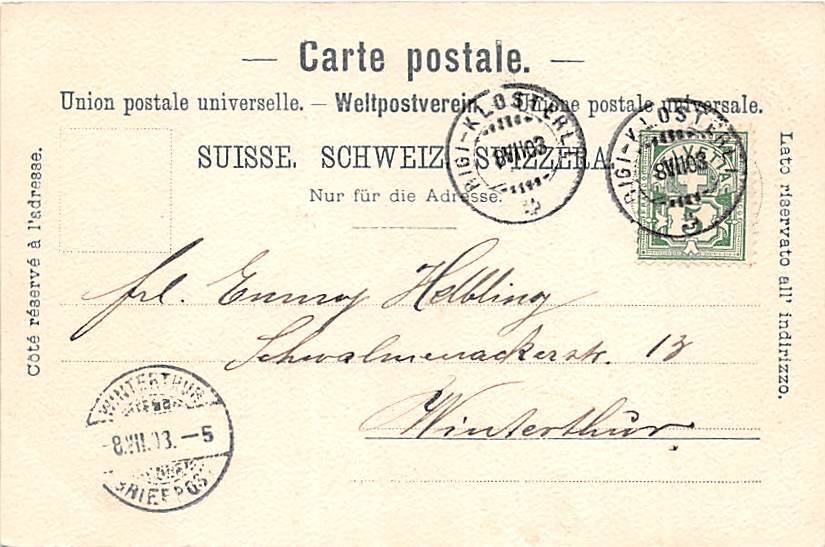 — Carte postale. —
Union postale universelle. — Weltpostverein. — Unione postale universale.
SUISSE. SCHWEIZ. SVIZZERA.
Nur für die Adresse.
Côté réservé à l'adresse.
Lato riservato all' indirizzo.
RIGI-KLÖSTERLI
8.VII.03
RIGI-KLÖSTERLI
8.VII.03
5
frl. Emmy Helbling
Schwalmenackerstr. 13
Winterthur.
WINTERTHUR
-8.VII.03.-5
BRIEFPOST